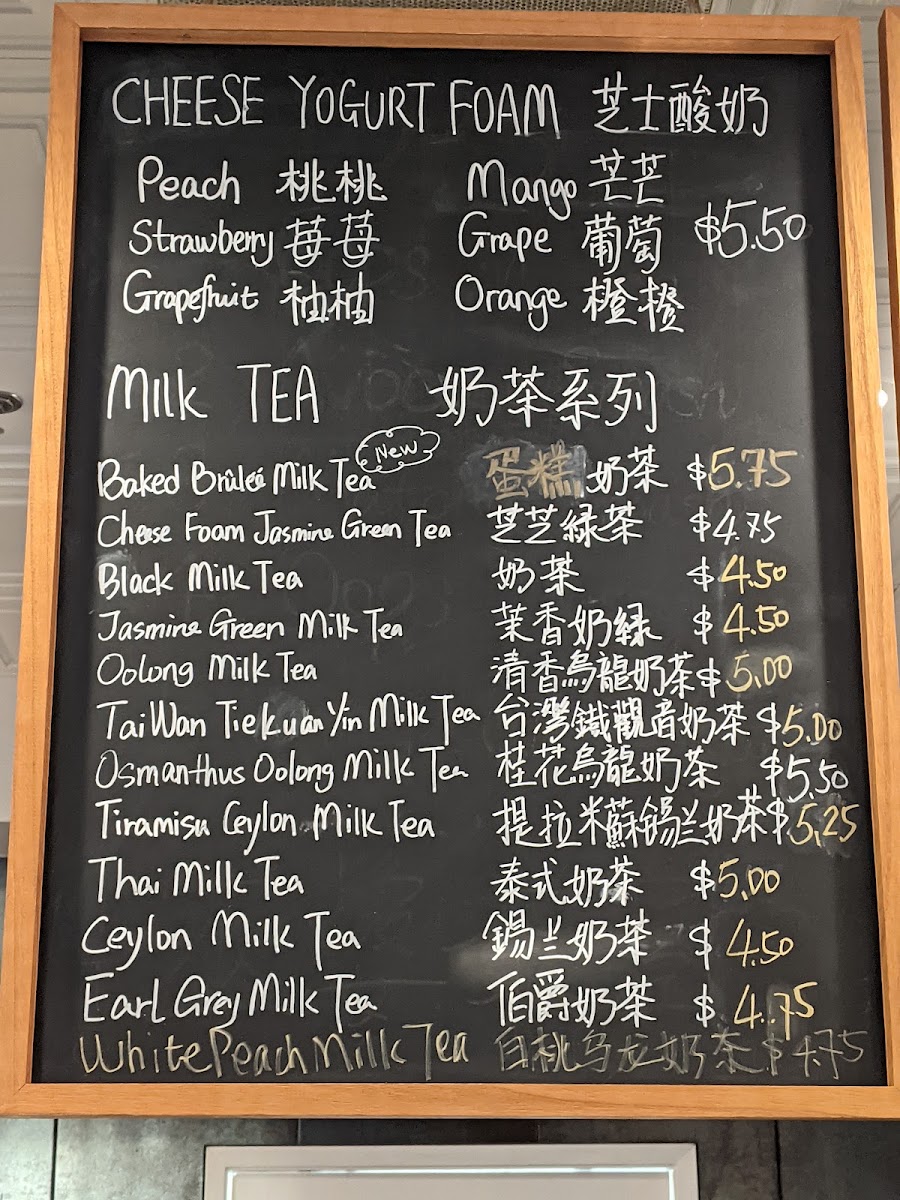 CHEESE YOGURT FOAM 芝士酸奶
Peach 桃桃 Mango 芒芒
Strawberry 莓莓 Grape 葡萄 $5.50
Grapefruit 柚柚 Orange 橙橙
Milk TEA 奶茶系列
New
Baked Brûleé Milk Tea 蛋糕奶茶 $5.75
Cheese Foam Jasmine Green Tea 芝芝緑茶 $4.75
Black Milk Tea 奶茶 $4.50
Jasmine Green Milk Tea 茉香奶緑 $4.50
Oolong Milk Tea 清香烏龍奶茶 $5.00
TaiWan Tiekuan Yin Milk Tea 台灣鐵觀音奶茶 $5.00
Osmanthus Oolong Milk Tea 桂花烏龍奶茶 $5.50
Tiramisu Ceylon Milk Tea 提拉米蘇錫兰奶茶 $5.25
Thai Milk Tea 泰式奶茶 $5.00
Ceylon Milk Tea 錫兰奶茶 $4.50
Earl Grey Milk Tea 伯爵奶茶 $4.75
White Peach Milk Tea 白桃乌龙奶茶 $4.75